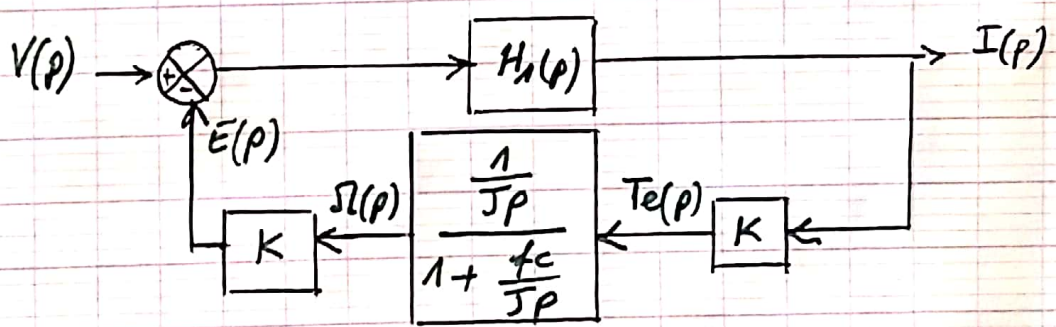 V(p)
+
-
H₁(p)
I(p)
E(p)
K
Ω(p)
1
Jp
1 + fc
Jp
Te(p)
K